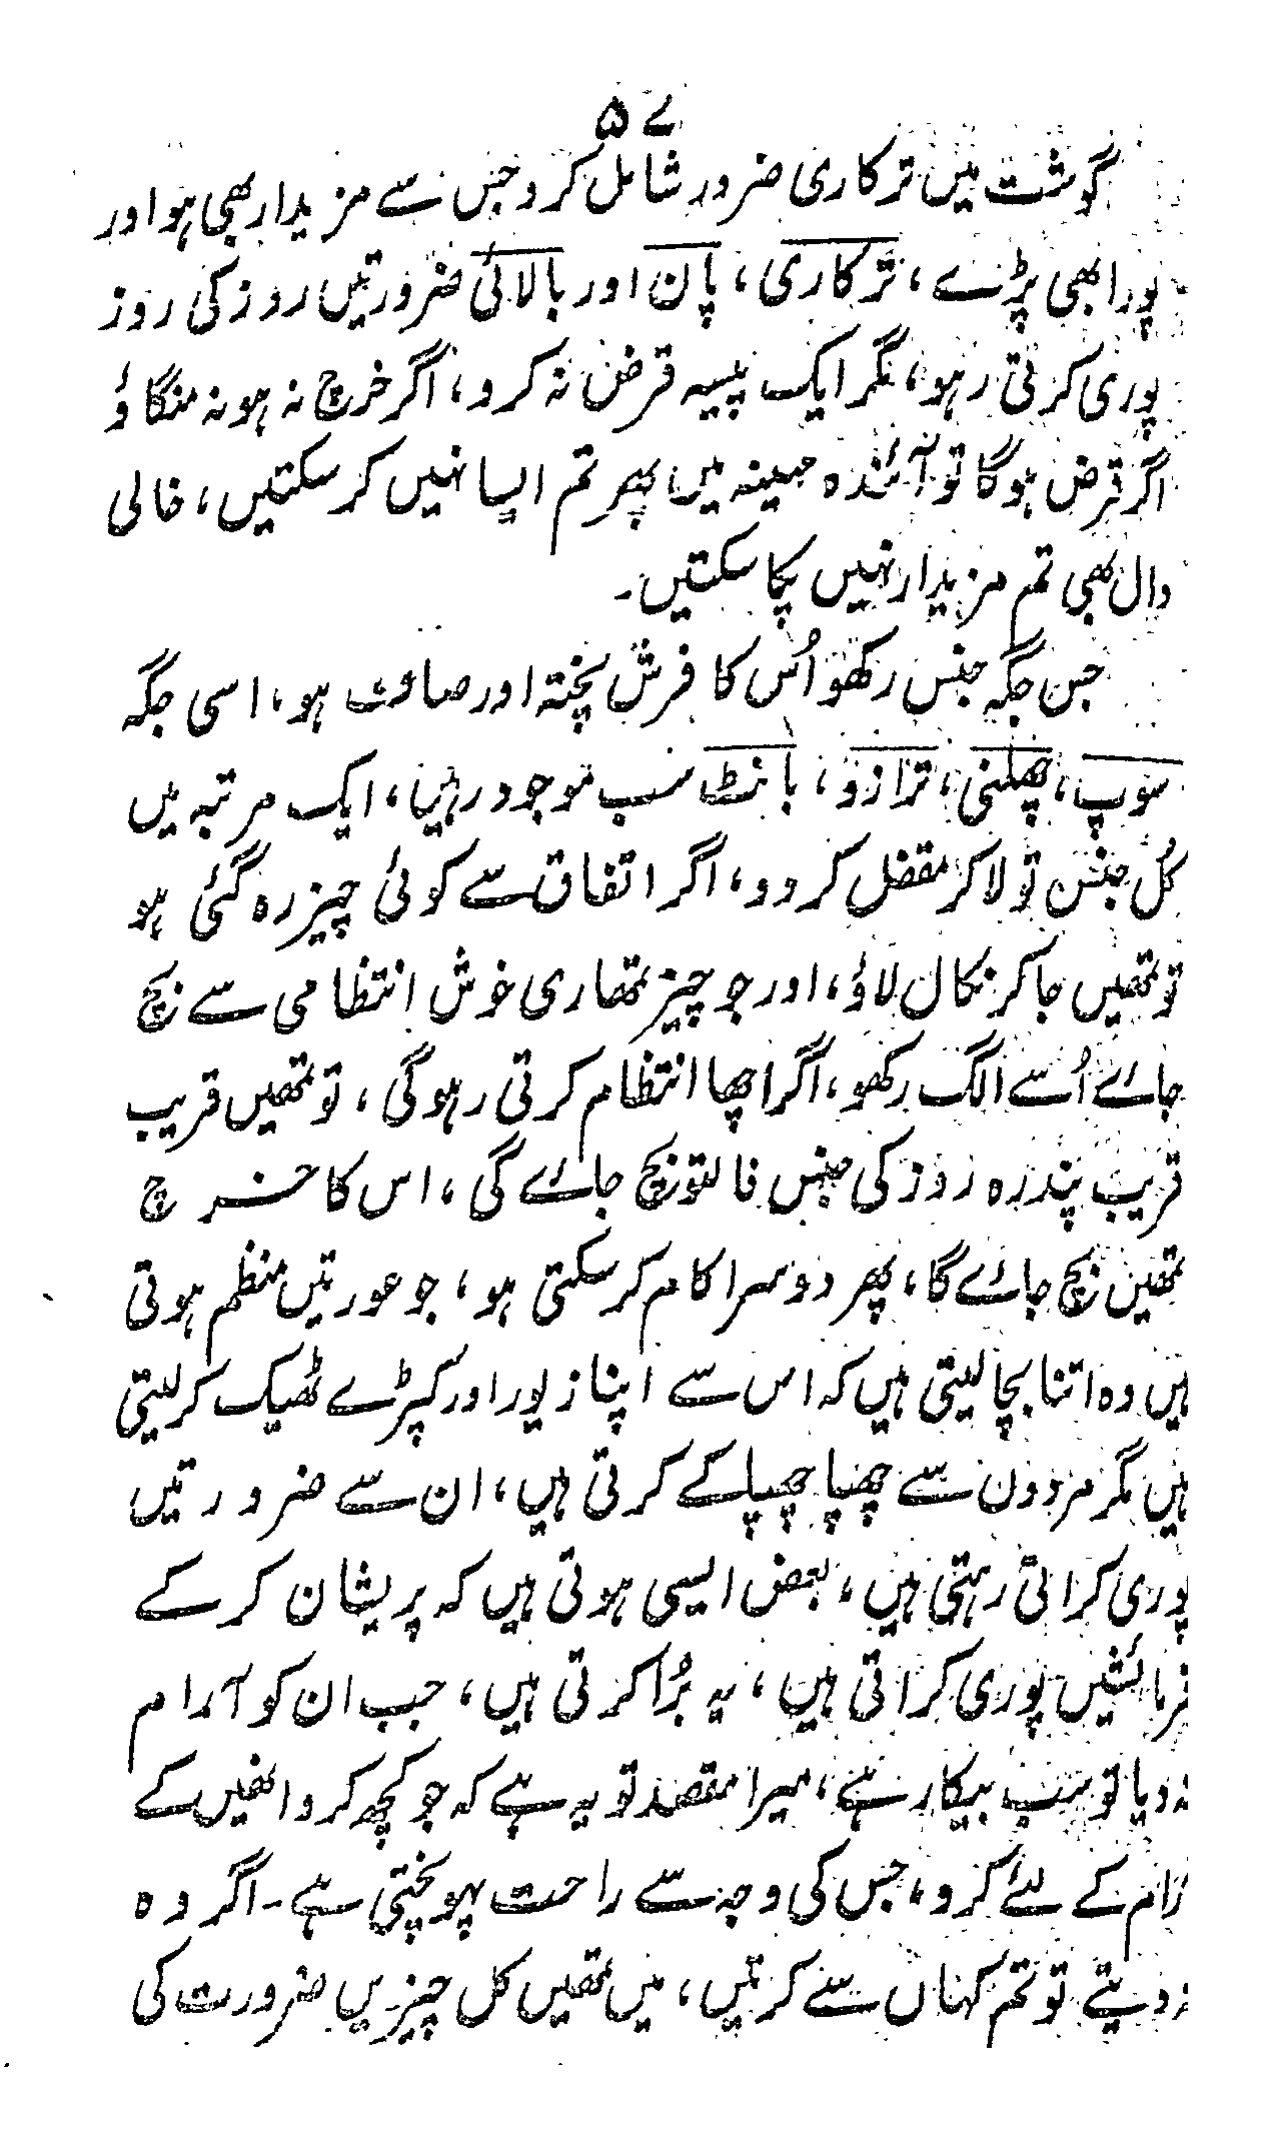 ۵۷
گوشت میں ترکاری ضرور شامل کرو جس سے مزیدار بھی ہو اور
پورا بھی پڑے، ترکاری، پان اور بالائی ضرورتیں روز کی روز
پوری کرتی رہو، مگر ایک پیسہ قرض نہ کرو، اگر خرچ نہ ہو نہ منگاؤ
اگر قرض ہوگا تو آئندہ مہینہ میں پھر تم ایسا نہیں کر سکتیں، خالی
دال بھی تم مزیدار نہیں پکا سکتیں۔
جس جگہ جنس رکھو اُس کا فرش پختہ اور صاف ہو، اسی جگہ
سوپ، چھلنی، ترازو، بانٹ سب موجود رہیں، ایک مرتبہ میں
کُل جنس تولا کر مقفل کر دو، اگر اتفاق سے کوئی چیز رہ گئی ہو
تو تمھیں جا کر نکال لاؤ، اور جو چیز تمھاری خوش انتظامی سے بچ
جائے اُسے الگ رکھو، اگر اچھا انتظام کرتی رہوگی، تو تمھیں قریب
قریب پندرہ روز کی جنس فالتو بچ جائے گی، اس کا خرچ
تمھیں بچ جائے گا، پھر دوسرا کام کر سکتی ہو، جو عورتیں منظم ہوتی
ہیں وہ اتنا بچا لیتی ہیں کہ اس سے اپنا زیور اور کپڑے ٹھیک کر لیتی
ہیں مگر مردوں سے چھپا چھپا کے کرتی ہیں، ان سے ضرورتیں
پوری کراتی رہتی ہیں، بعض ایسی ہوتی ہیں کہ پریشان کر کے
فرمائشیں پوری کراتی ہیں، یہ بُرا کرتی ہیں، جب ان کو آرام
نہ دیا تو سب بیکار ہے، میرا مقصد تو یہ ہے کہ جو کچھ کرو انھیں کے
آرام کے لئے کرو، جس کی وجہ سے راحت پہونچتی ہے۔ اگر وہ
نہ دیتے تو تم کہاں سے کرتیں، میں تمھیں کل چیزیں ضرورت کی